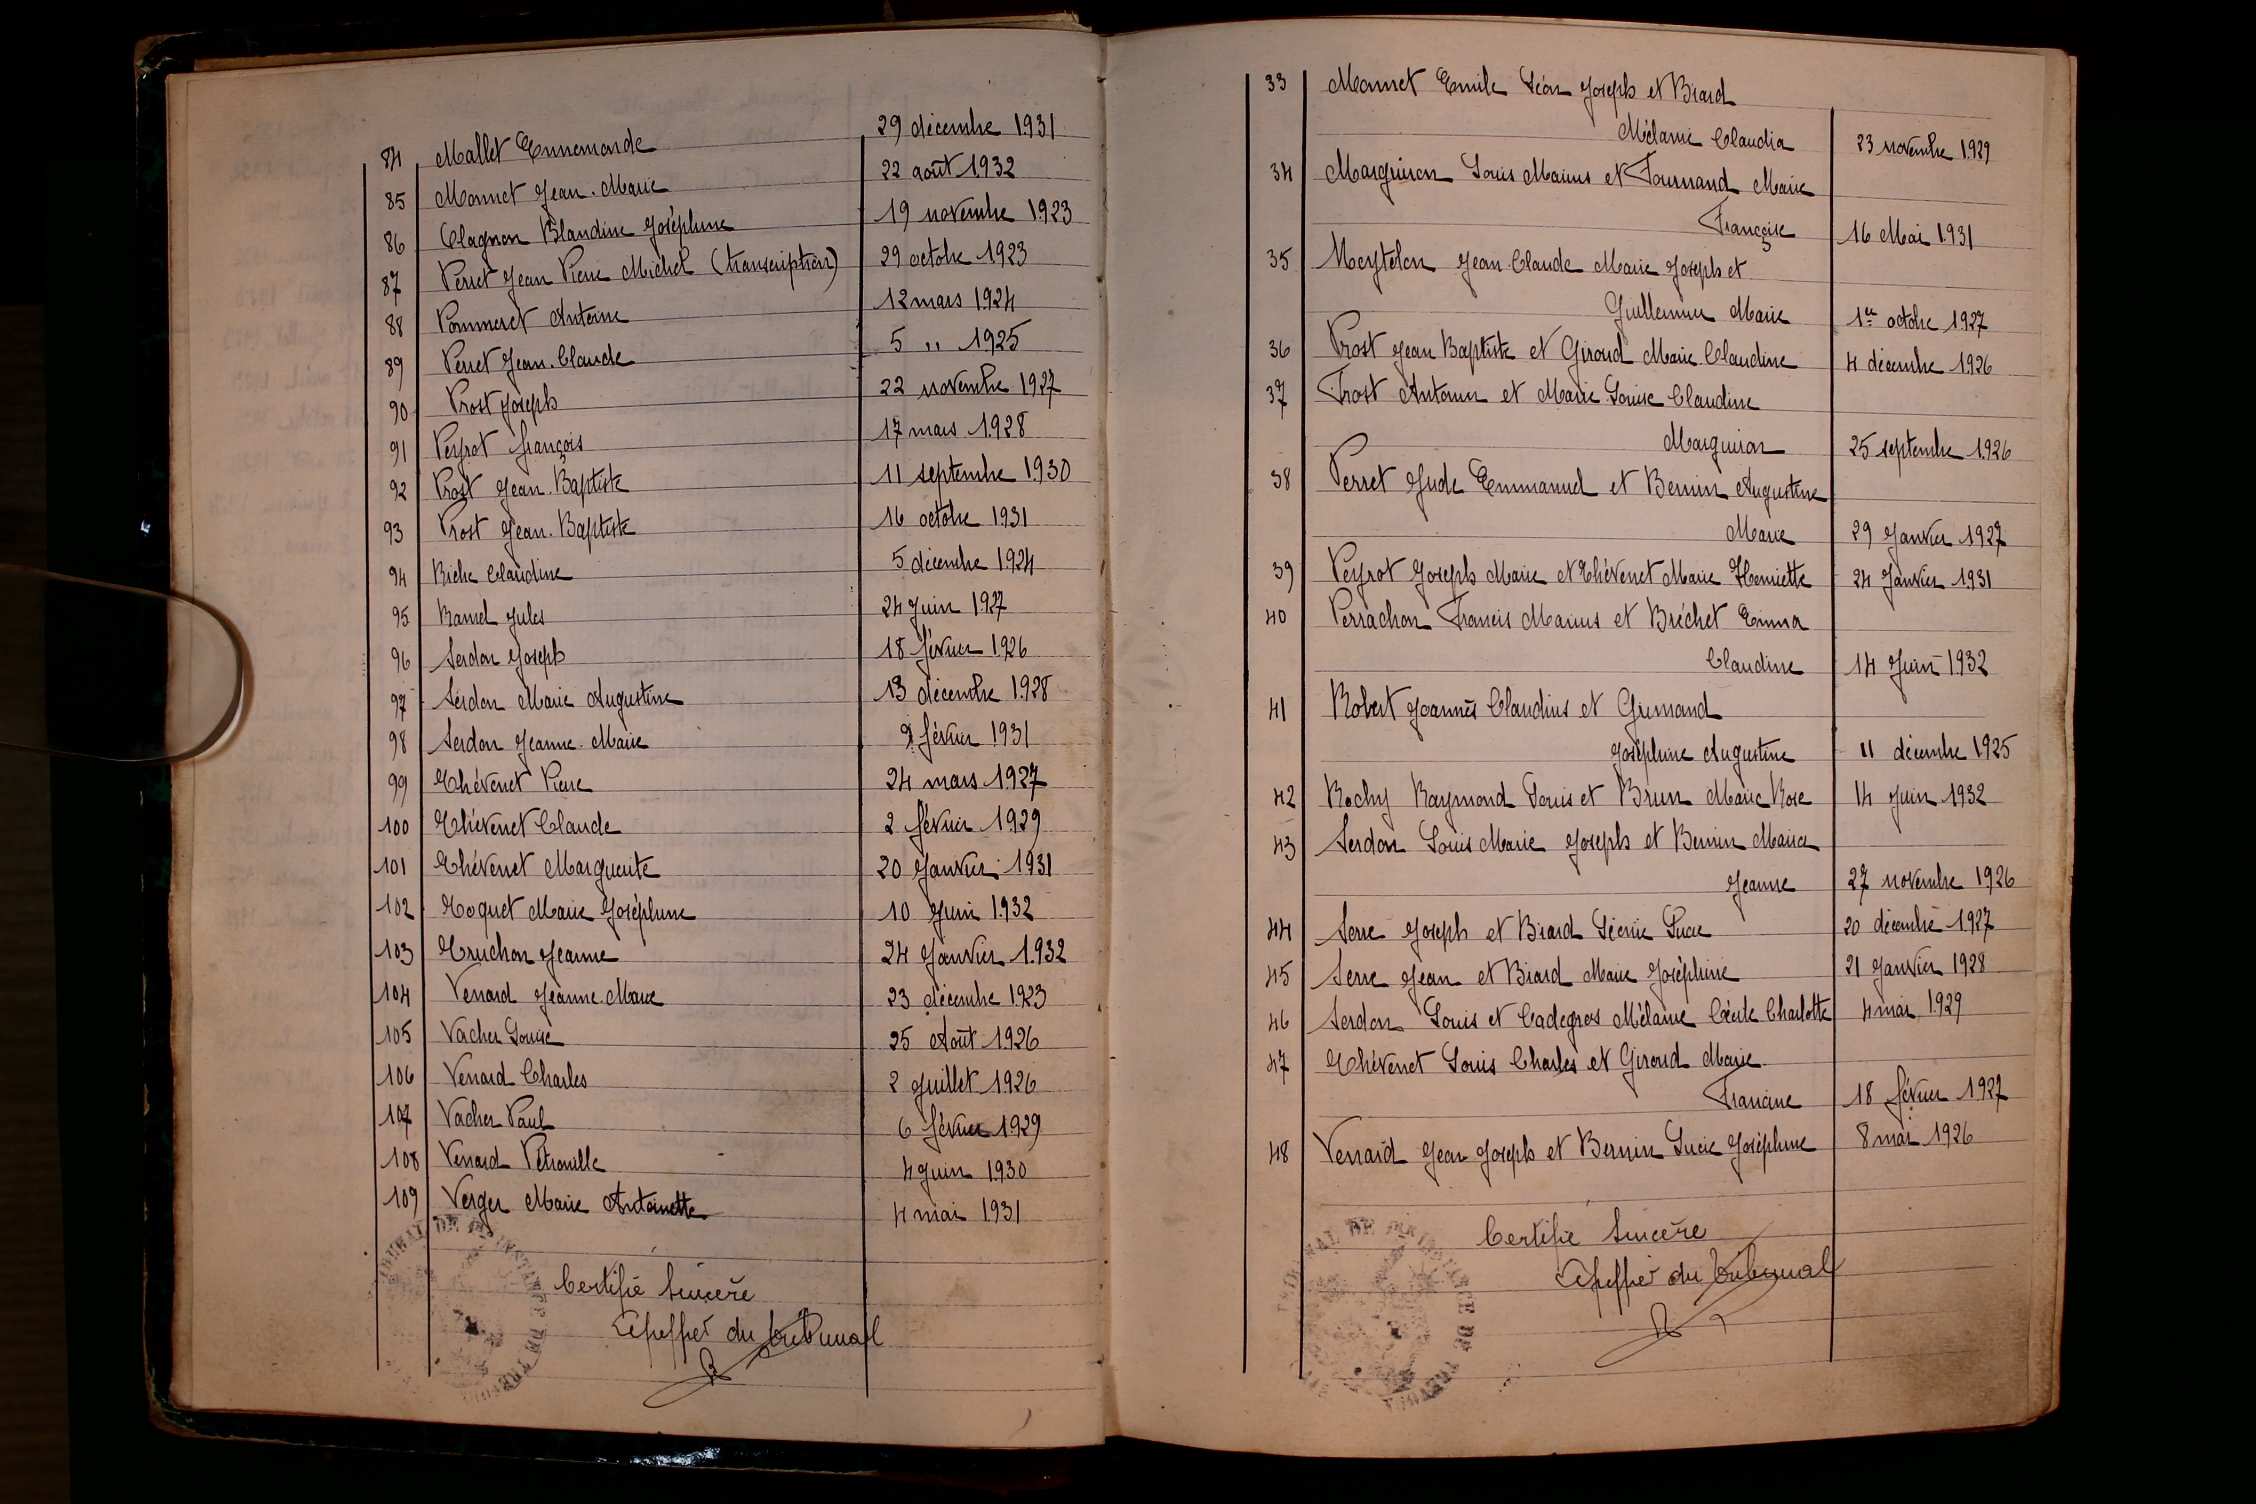 84 Mallet Ennemonde 29 décembre 1931
85 Monnet Jean-Marie 22 août 1932
86 Clagnon Blandine Joséphine 19 novembre 1923
87 Perret Jean Pierre Michel (transcription) 29 octobre 1923
88 Pommeret Antoine 12 mars 1924
89 Perret Jean-Claude 5 " 1925
90 Prost Joseph 22 novembre 1927
91 Peyrot françois 17 mars 1928
92 Prost Jean-Baptiste 11 septembre 1930
93 Prost Jean-Baptiste 16 octobre 1931
94 Riche Claudine 5 décembre 1924
95 Ramel Jules 24 Juin 1927
96 Serdon Joseph 18 février 1926
97 Serdon Marie Augustine 13 décembre 1928
98 Serdon Jeanne-Marie 9 février 1931
99 Thévenet Pierre 24 mars 1927
100 Thévenet Claude 2 février 1929
101 Thévenet Marguerite 20 Janvier 1931
102 Toquet Marie Joséphine 10 Juin 1932
103 Truchon Jeanne 24 Janvier 1932
104 Venard Jeanne-Marie 23 décembre 1923
105 Vacher Louise 25 Août 1926
106 Venard Charles 2 Juillet 1926
107 Vacher Paul 6 février 1929
108 Venard Pétronille 4 Juin 1930
109 Verger Marie Antoinette 4 mai 1931
Certifié Sincère
du tribunal
33 Monnet Emile Léon Joseph et Biard
Mélanie Claudia 23 novembre 1929
34 Marguiron Louis Marius et Tournand Marie
Françoise 16 Mai 1931
35 Meytelon Jean-Claude Marie Joseph et
Guillermin Marie 1er octobre 1927
36 Prost Jean Baptiste et Giroud Marie Claudine 4 décembre 1926
37 Prost Antonin et Marie Louise Claudine
Marguiron 25 septembre 1926
38 Perret Jude Emmanuel et Bernin Augustine
Marie 29 Janvier 1927
39 Peyrot Joseph Marie et Thévenet Marie Henriette 24 Janvier 1931
40 Perrachon Francis Marius et Bréchet Emma
Claudine 14 Juin 1932
41 Robert Joannès Claudius et Grimand
Joséphine Augustine 11 décembre 1925
42 Rochy Raymond Louis et Brun Marie Rose 14 Juin 1932
43 Serdon Louis Marie Joseph et Bernin Maria
Jeanne 27 novembre 1926
44 Serre Joseph et Biard Léonie Lucie 20 décembre 1927
45 Serre Jean et Biard Marie Joséphine 21 Janvier 1928
46 Serdon Louis et Cadegros Mélanie Cécile Charlotte 4 mai 1929
47 Thévenet Louis Charles et Giroud Marie
Francine 18 février 1927
48 Venard Jean Joseph et Bernin Lucie Joséphine 8 mai 1926
Certifié Sincère
du tribunal